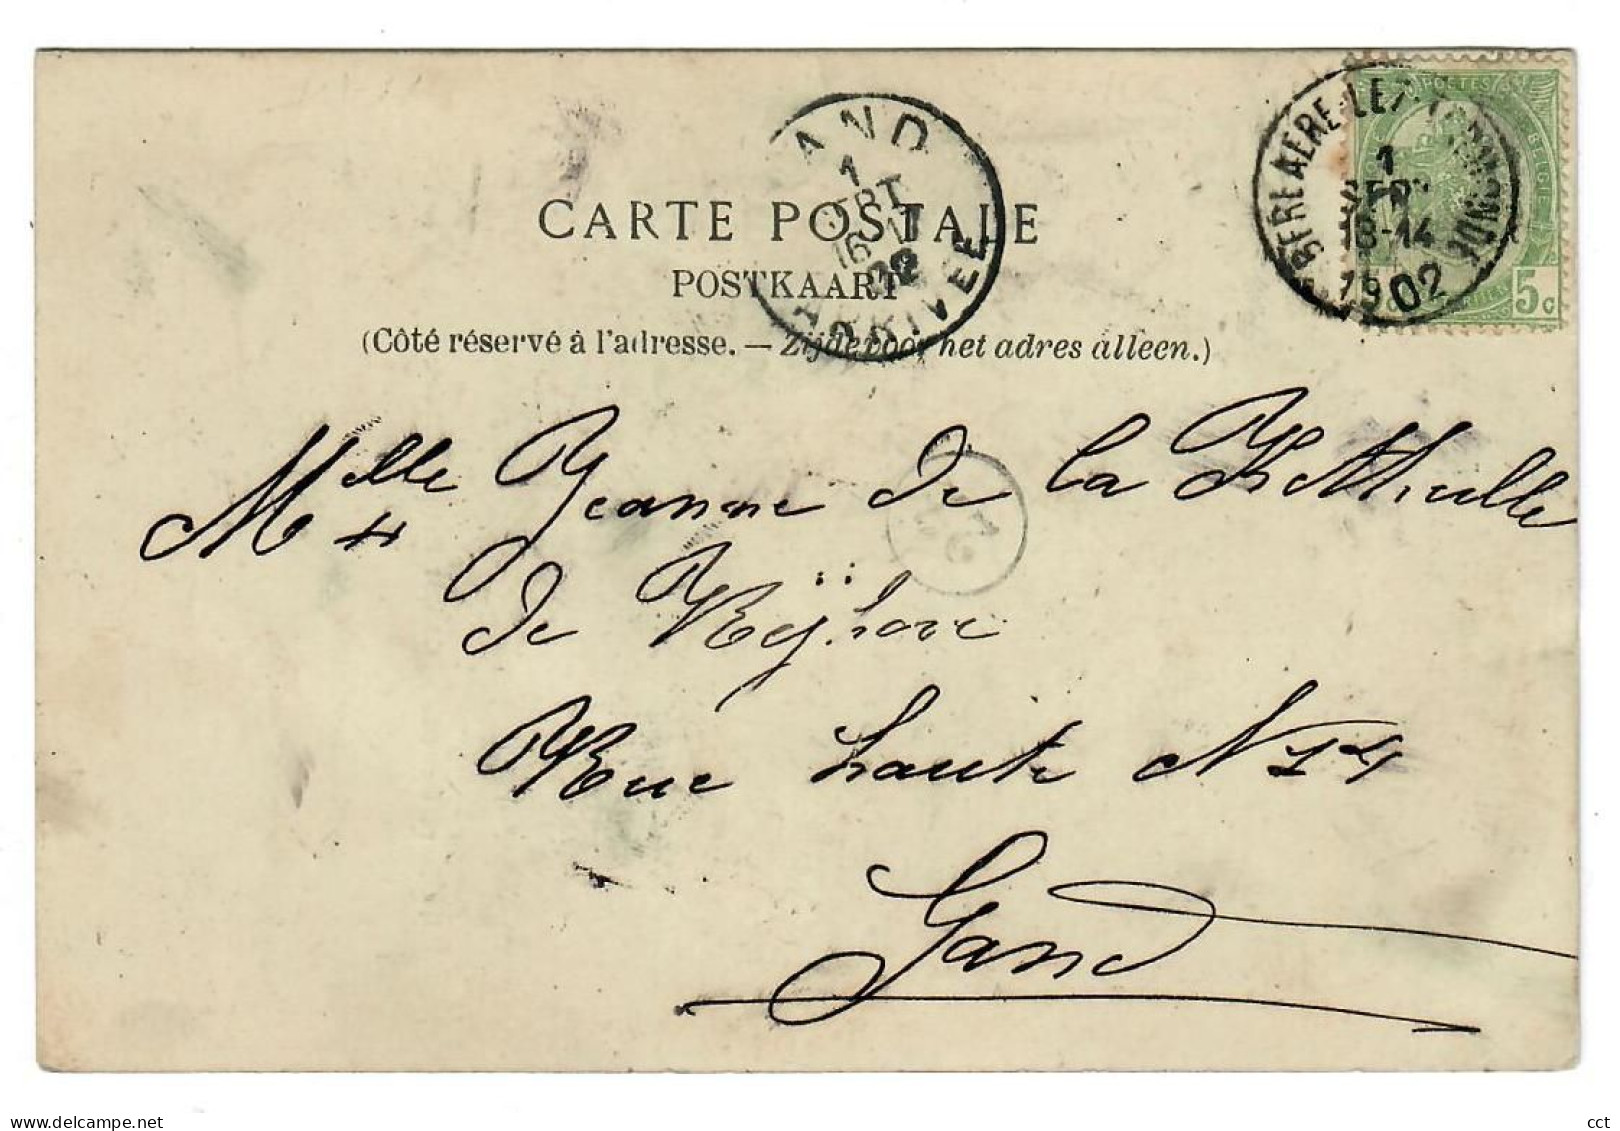 POSTES
BELGIQUE
5c
BERLAERE-LEZ-TERMONDE
1
SEPT
13-14
1902
GAND
1
SEPT
16-17
02
ARRIVEE
CARTE POSTALE
POSTKAART
(Côté réservé à l'adresse. — Zijde voor het adres alleen.)
Melle Jeanne de la Kethulle
de Rÿhove
Rue haute N 14
Gand
www.delcampe.net
cct